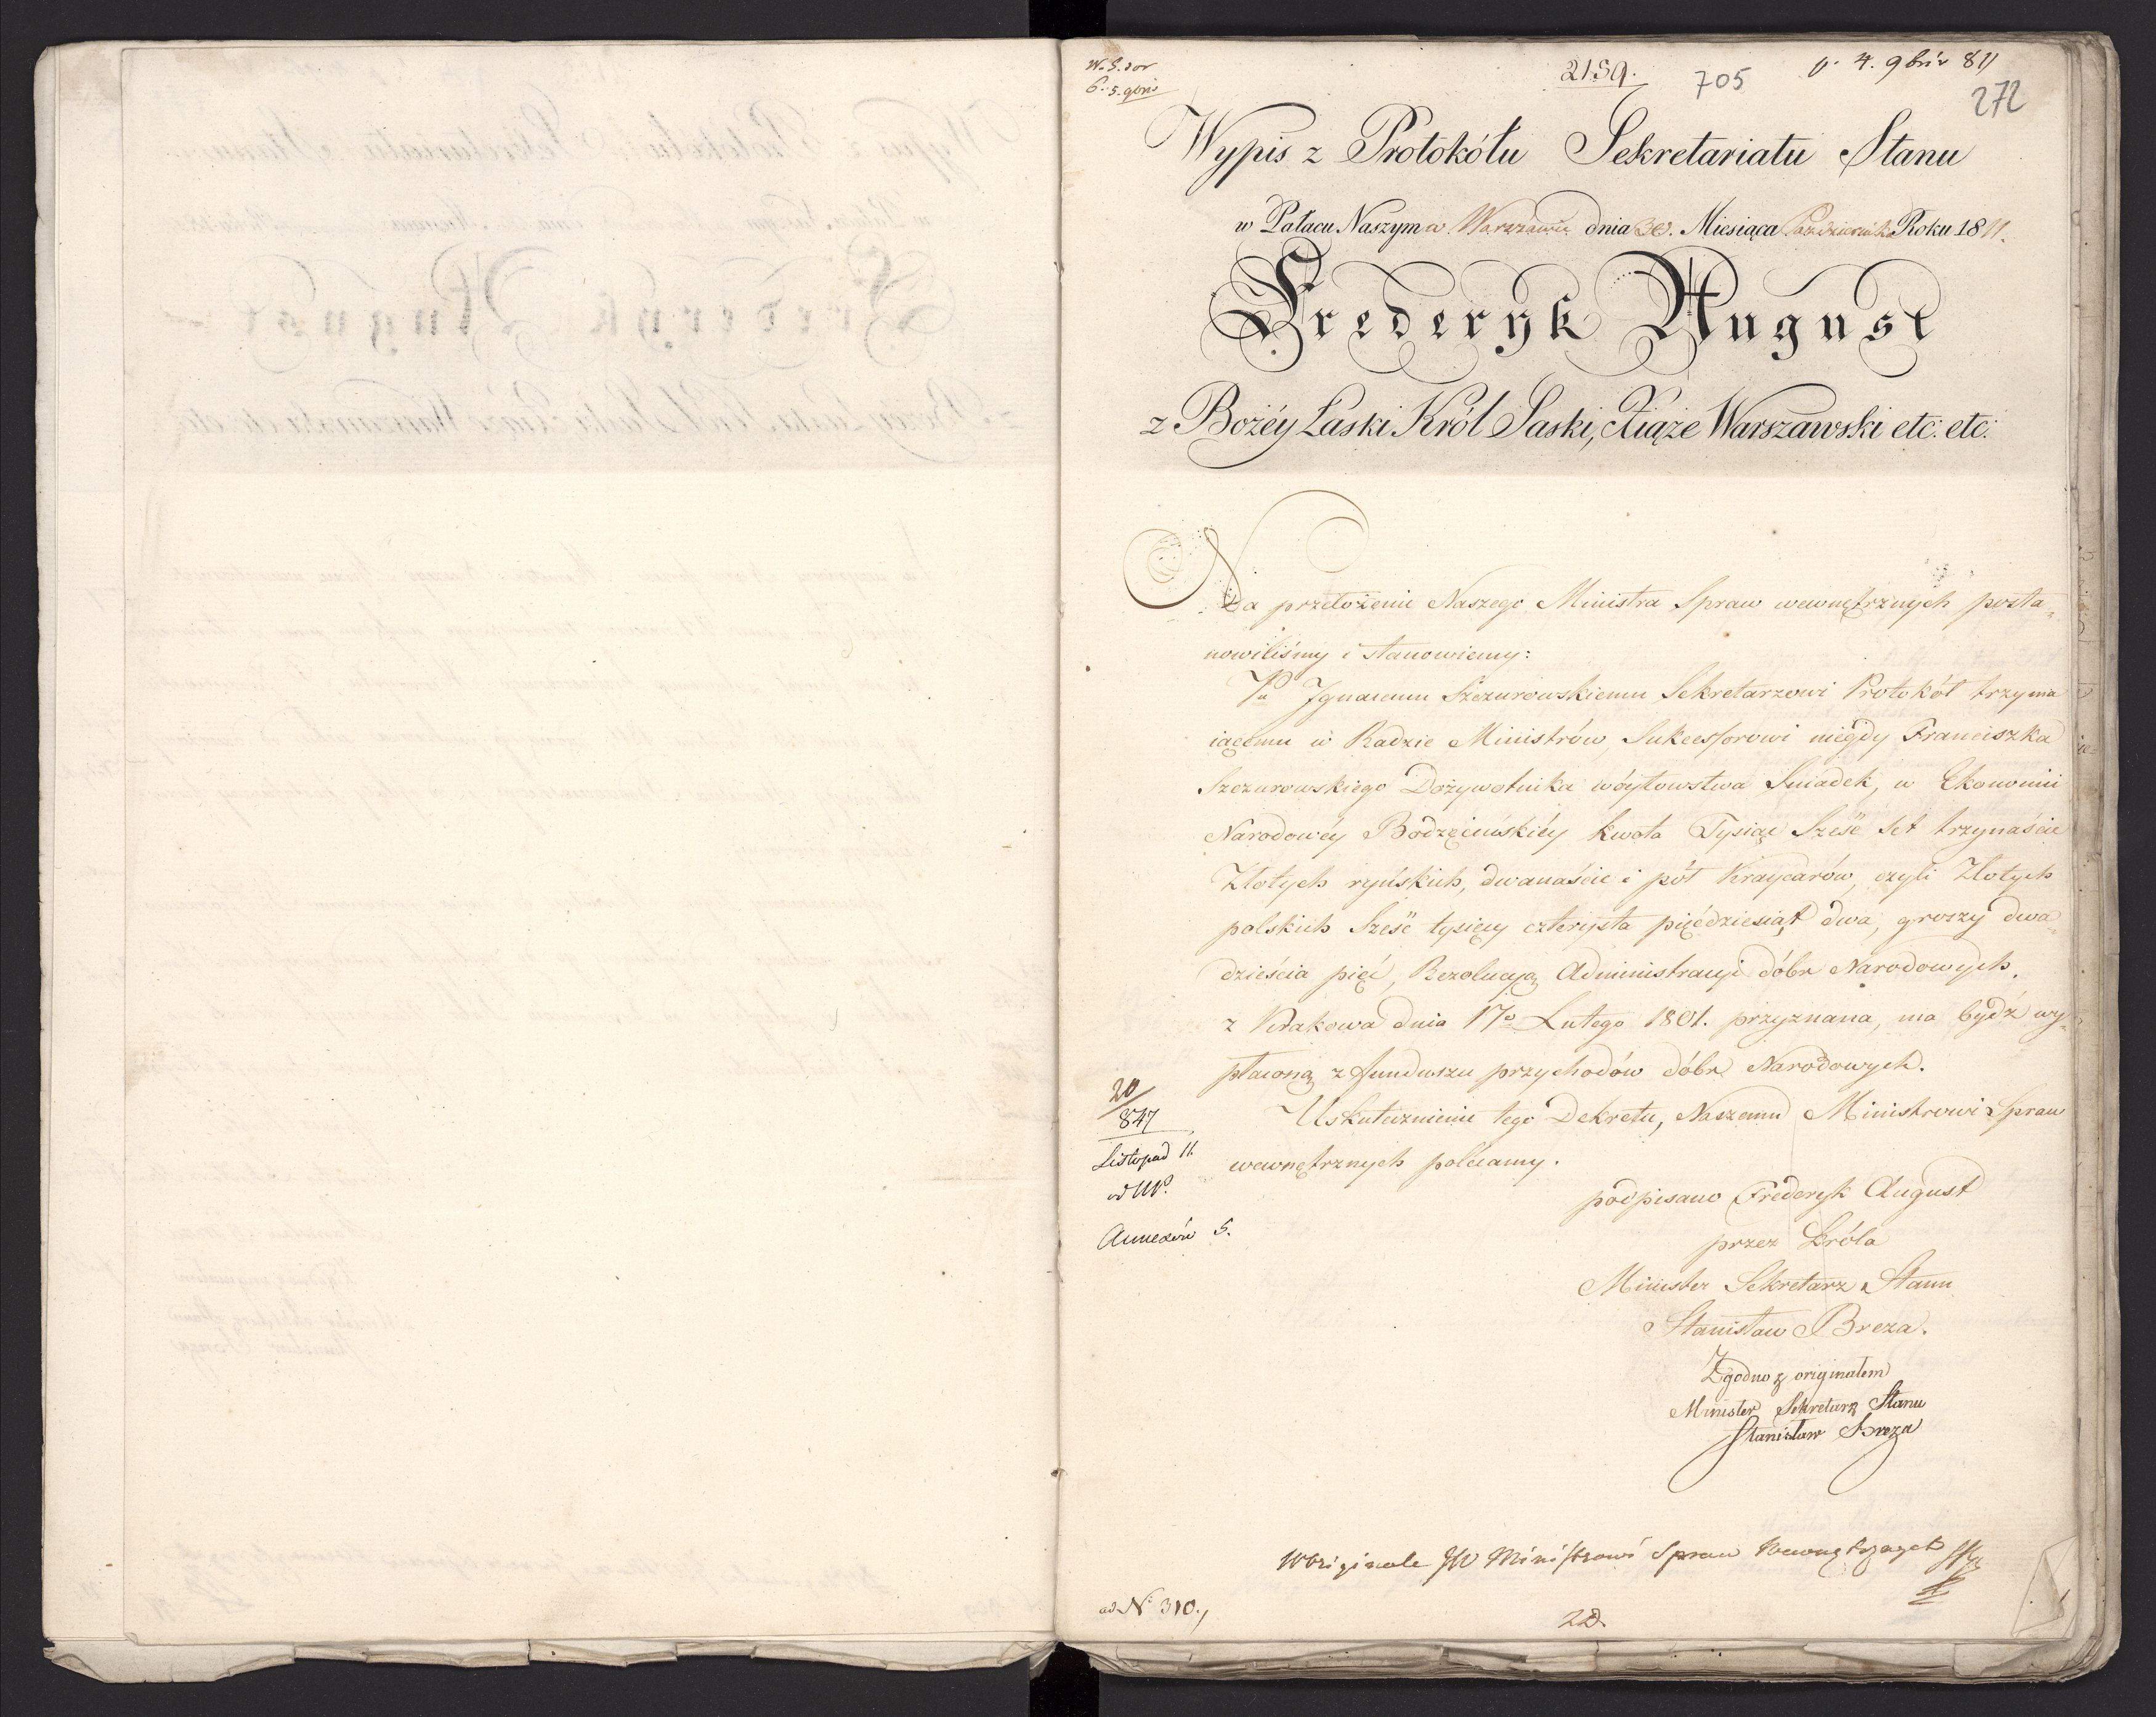 W. S. zor
6. 5. 9bris
2159.
705
p. 4. 9bris 811
272
Wypis z Protokółu Sekretariatu Stanu
w Pałacu Naszym w Warszawie dnia 30. Miesiąca Października Roku 1811.
Frederyk August
z Bożéy Łaski Król Saski, Xiąże Warszawski etc. etc.
Na przełożenie Naszego Ministra Spraw wewnętrznych posta=
nowiliśmy i stanowiemy:
Pu Ignacemu Szczurowskiemu Sekretarzowi Protokół trzyma
iącemu w Radzie Ministrów Sukcessorowi niegdy Franciszka
Szczurowskiego Dożywotnika wóytowstwa Sniadek, w Ekonomii
Narodowéy Bodzęcińskiéy kwota Tysiąc Sześć set trzynaście
Złotych ryńskich, dwanaście i pół Kraycarów, czyli Złotych
polskich Sześć tysięcy czterysta pięćdziesiąt dwa, groszy dwa=
dzieścia pięć, Rezolucyą Administracyi dóbr Narodowych.
z Krakowa dnia 17º Lutego 1801. przyznana, ma bydź wy=
płaconą z funduszu przychodów dóbr Narodowych.
Uskutecznienie tego Dekretu, Naszemu Ministrowi Spraw
wewnętrznych polecamy.
20/
847
Listopad 11.
od MP.
Annexów 5.
podpisano Frederyk August
przez Króla
Minister Sekretarz Stanu
Stanisław Breza.
Zgodno z originałem
Minister Sekretarz Stanu
Stanisław Breza
W originale JW Ministrowi Spraw Wewnętrznych
ad No 310.